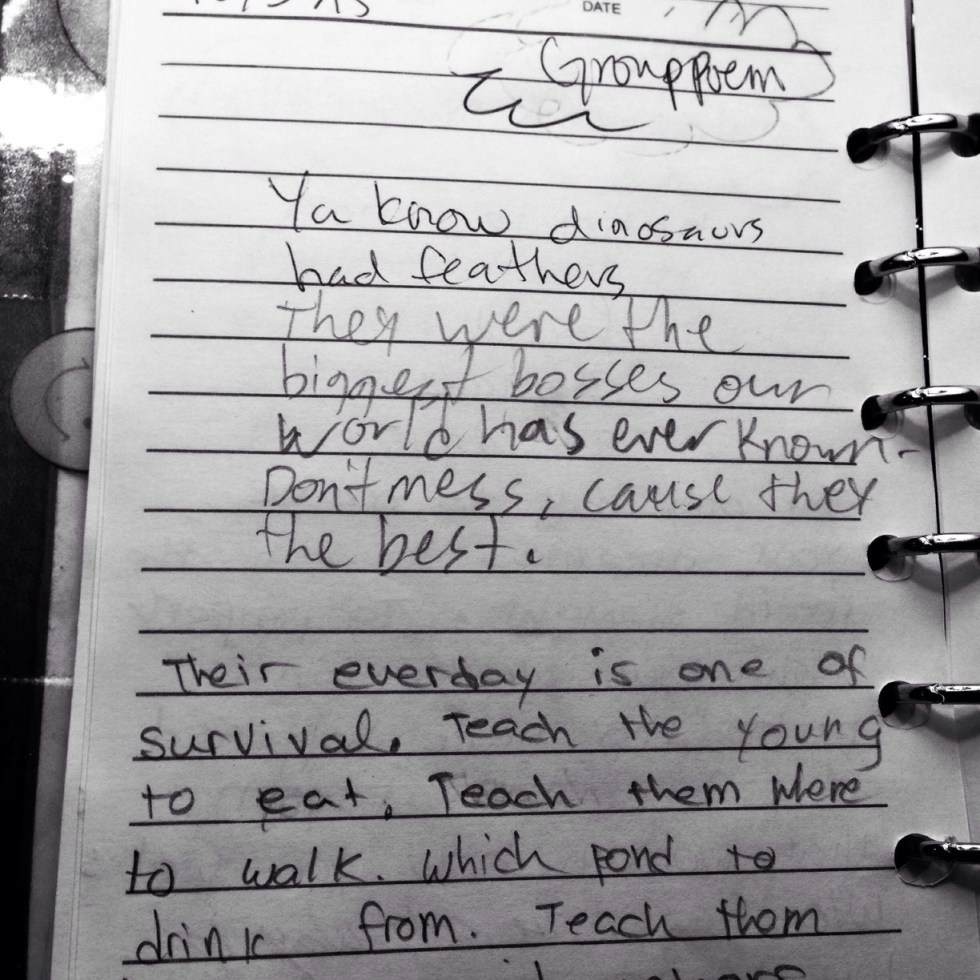 DATE
Grouppoem
Ya know dinosaurs
had feathers
They were the
biggest bosses our
world has ever known.
Don't mess, cause they
the best.
Their everday is one of
survival. Teach the young
to eat. Teach them Were
to walk. Which pond to
drink from. Teach them